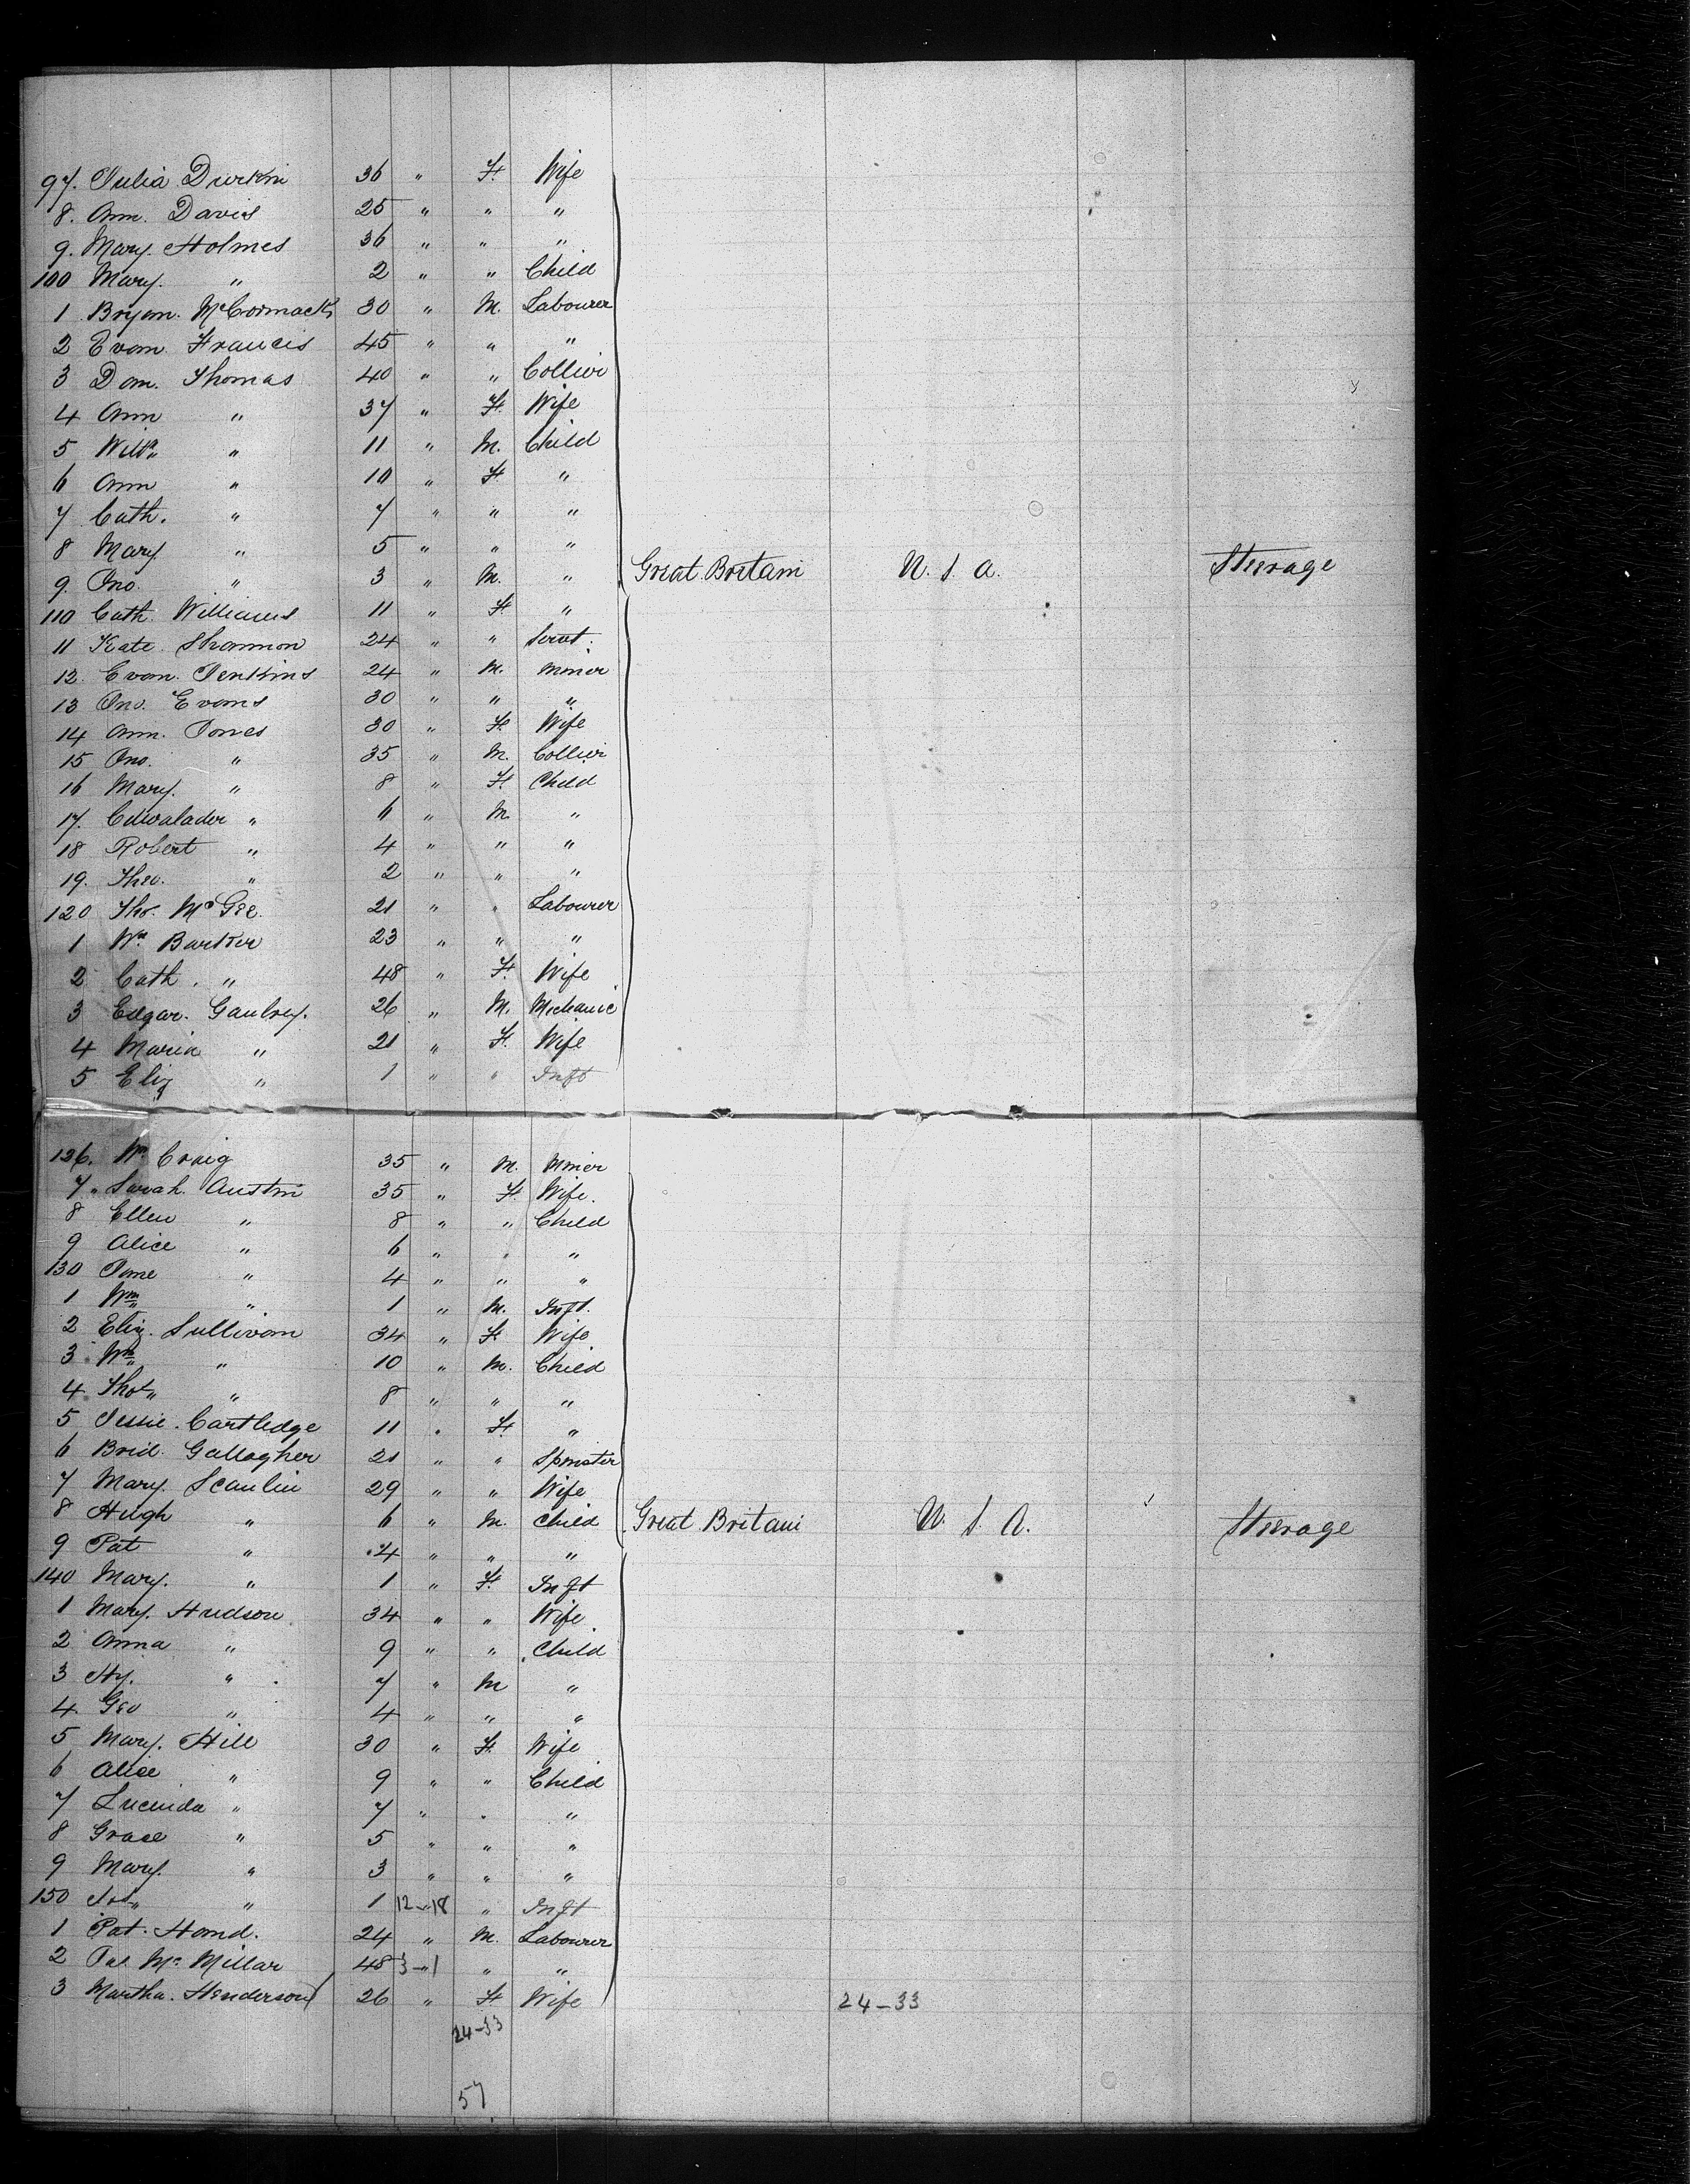 97. Julia Durkin 36 " F. Wife
8. Ann. Davis 25 " " "
9. Mary. Holmes 36 " " "
100 Mary. " 2 " " Child
1 Bryan. McCormack 30 " M. Labourer
2 Evan Francis 45 " " "
3 Dan. Thomas 40 " " Collier
4 Ann " 37 " F. Wife
5 Willm " 11 " M. Child
6 Ann " 10 " F. "
7 Cath. " 7 " " "
8 Mary. " 5 " " "
9. Jno. " 3 " M. " Great Britain U. S. A. Steerage
110 Cath. Williams 11 " F. "
11 Kate. Shannon 24 " " Servt.
12. Evan. Jenkins 24 " M. Miner
13 Jno. Evans 30 " " "
14 Ann. Jones 30 " F. Wife
15 Jno. " 35 " M. Collier
16 Mary. " 8 " F. Child
17. Cadwalader " 6 " M. "
18 Robert " 4 " " "
19. Theo. " 2 " " "
120 Tho. McGee. 21 " " Labourer
1 Wm Barker 23 " " "
2 Cath. " 48 " F. Wife
3 Edgar. Gaubrey. 26 " M. Mechanic
4 Maria " 21 " F. Wife
5 Eliz " 1 " " Inft
126. Wm Craig 35 " M. Miner
7 " Sarah. Austin 35 " F. Wife.
8 Ellen " 8 " " Child
9 Alice " 6 " " "
130 Jane " 4 " " "
1 Wm " 1 " M. Inft.
2 Eliz. Sullivan 34 " F. Wife
3 Wm " 10 " M. Child
4 Thos " 8 " " "
5 Jessie. Cartledge 11 " F. "
6 Brid. Gallagher 21 " " Spinster
7 Mary. Scanlin 29 " " Wife
8 Hugh " 6 " M. Child Great Britain U. S. A. Steerage
9 Pat " 4 " " "
140 Mary. " 1 " F. Inft
1 Mary. Hudson 34 " " Wife
2 Anna " 9 " " Child
3 Hy. " 7 " M "
4. Geo " 4 " " "
5 Mary. Hill 30 " F. Wife
6 Alice " 9 " " Child
7 Lucinda " 7 " " "
8 Grace " 5 " " "
9 Mary. " 3 " " "
150 Jos " 1 12-18 " Inft
1 Pat. Hand. 24 " M. Labourer
2 Jas. McMillar 48 3-1 " "
3 Martha. Henderson 26 " F. Wife 24-33
24-33
57